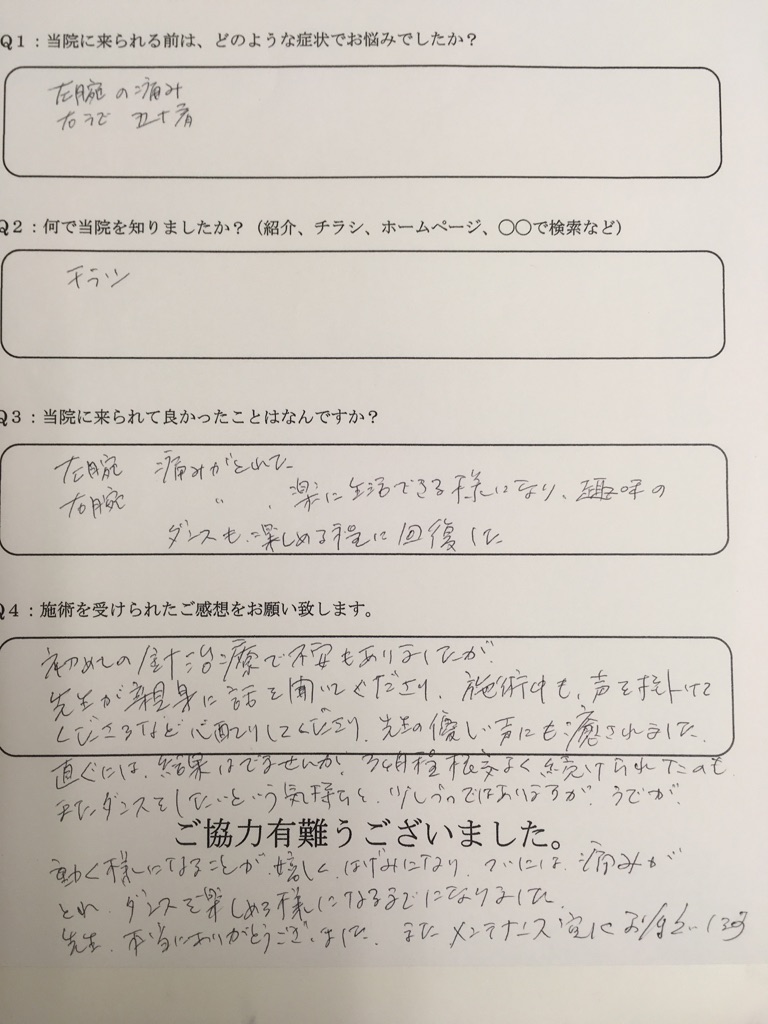 Q1：当院に来られる前は、どのような症状でお悩みでしたか？
左腕の痛み
右うで 五十肩
Q2：何で当院を知りましたか？（紹介、チラシ、ホームページ、〇〇で検索など）
チラシ
Q3：当院に来られて良かったことはなんですか？
左腕 痛みがとれた
右腕 〃 、楽に生活できる様になり、趣味の
ダンスも楽しめる程に回復した
Q4：施術を受けられたご感想をお願い致します。
初めての針治療で不安もありましたが
先生が親身に話を聞いてくださり、施術中も、声を掛けて
くださるなど心配りしてくださり、先生の優しい声にも癒されました。
直ぐには、結果はでませんが、3ヶ月程根気よく続けられたのも
またダンスをしたいという気持ちと、少しづつではありますが、うでが、
ご協力有難うございました。
動く様になることが嬉しく、はげみになり、ついには、痛みが
とれ、ダンスを楽しめる様になるまでになりました。
先生、本当にありがとうございました。またメンテナンス宜しくお願い